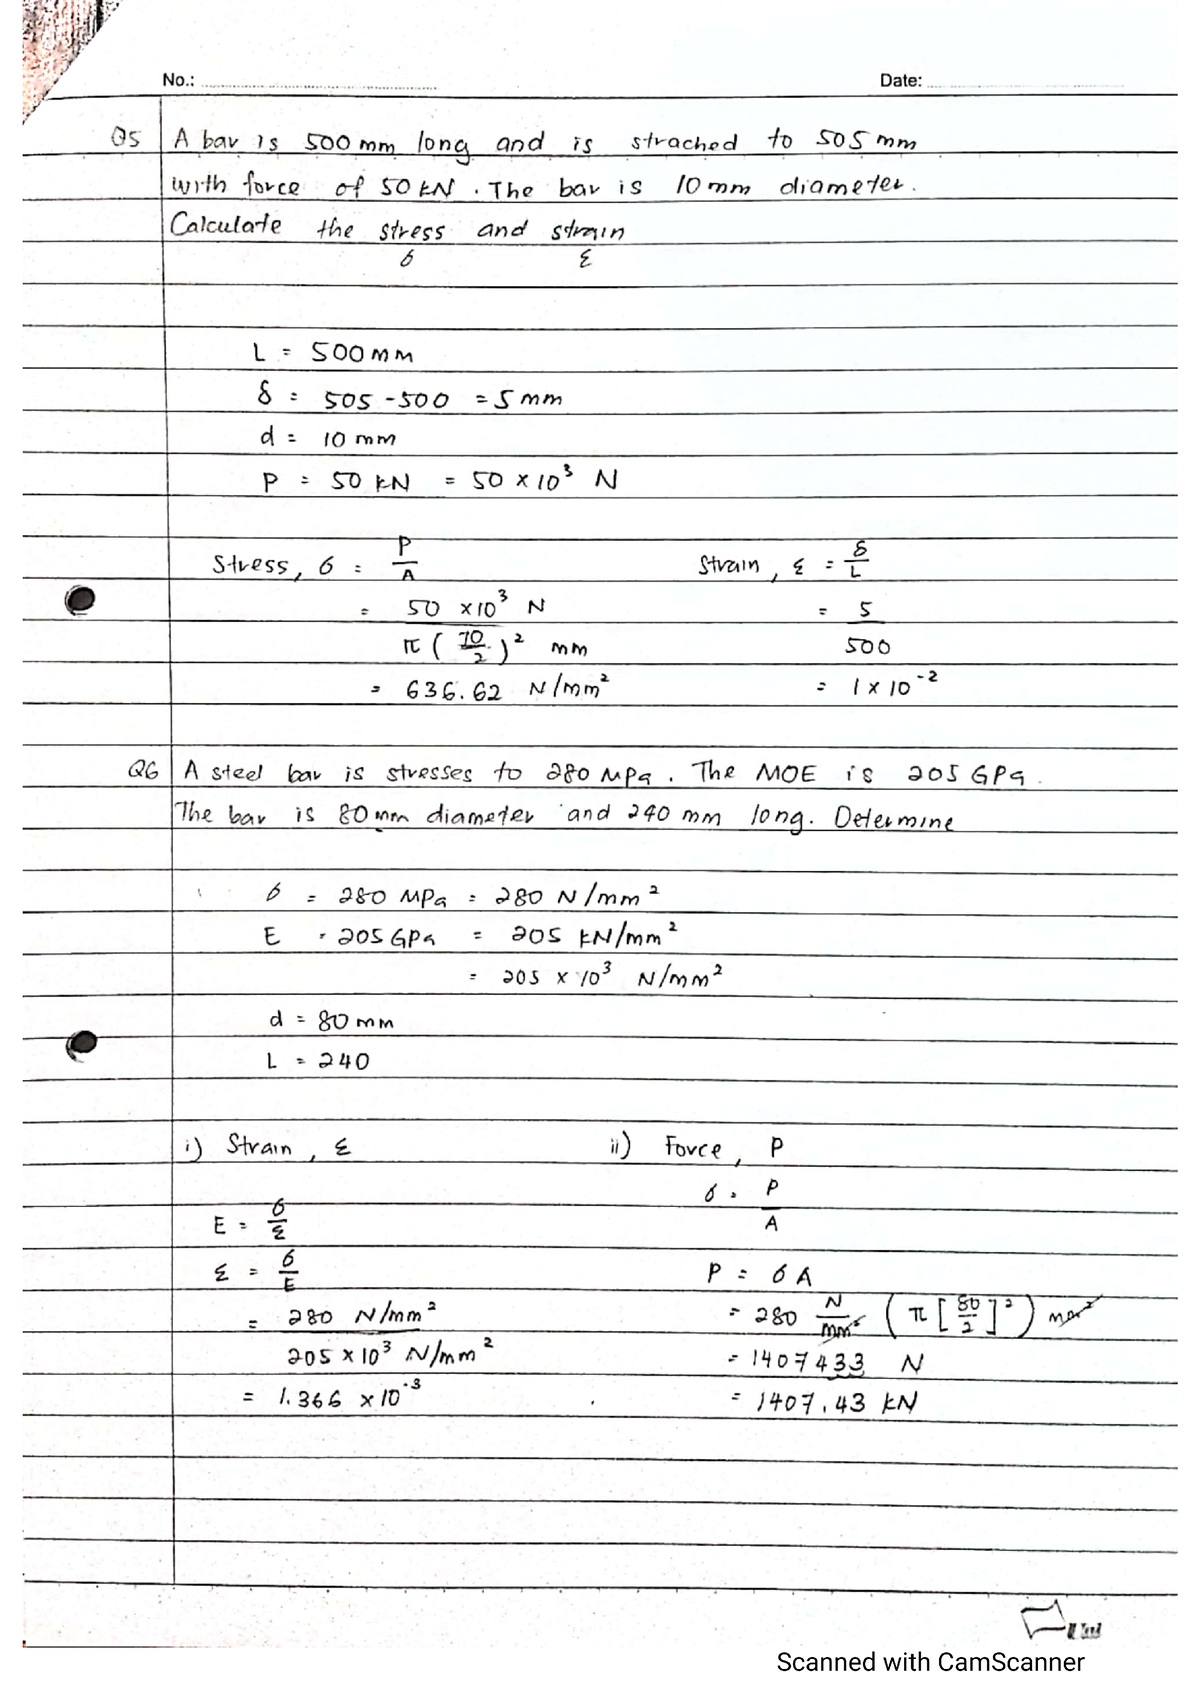 No.: Date:
Q5 A bar is 500 mm long and is strached to 505 mm
with force of 50 kN. The bar is 10 mm diameter.
Calculate the stress and strain
σ ε
L = 500 mm
δ = 505 - 500 = 5 mm
d = 10 mm
P = 50 kN = 50 × 10³ N
Stress, σ = P/A Strain, ε = δ/L
= 50 × 10³ N / π (10/2)² mm = 5/500
= 636.62 N/mm² = 1 × 10⁻²
Q6 A steel bar is stresses to 280 MPa. The MOE is 205 GPa.
The bar is 80 mm diameter and 240 mm long. Determine
σ = 280 MPa = 280 N/mm²
E = 205 GPa = 205 kN/mm²
= 205 × 10³ N/mm²
d = 80 mm
L = 240
i) Strain, ε ii) Force, P
E = σ/ε σ = P/A
ε = σ/E P = σA
= 280 N/mm² / 205 × 10³ N/mm² = 280 N/mm² (π [80/2]²) mm²
= 1407433 N
= 1.366 × 10⁻³ = 1407.43 kN
Scanned with CamScanner